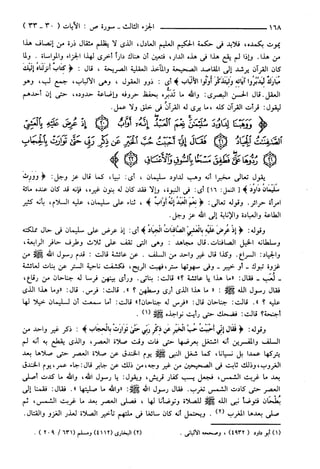 ١٦٨
الجزء الثالث ـ سورة ص : الآيات ( ٣٠ ـ ٣٣ )
يموت بكمده، فلابد في حكمة الحكيم العليم العادل، الذي لا يظلم مثقال ذرة من إنصاف هذا
من هذا. وإذا لم يقع هذا في هذه الدار، فتعين أن هناك داراً أخرى لهذا الجزاء والمواساة . ولما
كان القرآن يرشد إلى المقاصد الصحيحة والمآخذ العقلية الصريحة ، قال: ﴿ كِتَابٌ أَنزَلْنَاهُ إِلَيْكَ
مُبَارَكٌ لِّيَدَّبَّرُوا آيَاتِهِ وَلِيَتَذَكَّرَ أُولُوا الْأَلْبَابِ ﴾ أي : ذوو العقول ، وهي الألباب، جمع لب، وهو
العقل. قال الحسن البصري: والله ما تَدَبُّره بحفظ حروفه وإضاعة حدوده، حتى إن أحدهم
ليقول: قرأت القرآن كله ،ما يرى له القرآنُ في خلق ولا عمل.
﴿ وَوَهَبْنَا لِدَاوُودَ سُلَيْمَانَ نِعْمَ الْعَبْدُ إِنَّهُ أَوَّابٌ ۝ إِذْ عُرِضَ عَلَيْهِ بِالْعَشِيِّ
الصَّافِنَاتُ الْجِيَادُ ۝ فَقَالَ إِنِّي أَحْبَبْتُ حُبَّ الْخَيْرِ عَن ذِكْرِ رَبِّي حَتَّى تَوَارَتْ بِالْحِجَابِ
۝ رُدُّوهَا عَلَيَّ فَطَفِقَ مَسْحًا بِالسُّوقِ وَالْأَعْنَاقِ ۝ ﴾
يقول تعالى مخبرا أنه وهب لداود سليمان ، أي: نبيا، كما قال عز وجل: ﴿ وَوَرِثَ
سُلَيْمَانُ دَاوُودَ ﴾ [ النمل: ١٦ ] أي : في النبوة، وإلا فقد كان له بنون غيره، فإنه قد كان عنده مائة
امرأة حرائر. وقوله تعالى: ﴿ نِعْمَ الْعَبْدُ إِنَّهُ أَوَّابٌ ﴾ ، ثناء على سليمان، عليه السلام، بأنه كثير
الطاعة والعبادة والإنابة إلى الله عز وجل.
وقوله: ﴿ إِذْ عُرِضَ عَلَيْهِ بِالْعَشِيِّ الصَّافِنَاتُ الْجِيَادُ ﴾ أي: إذ عرض على سليمان في حال مملكته
وسلطانه الخيل الصافنات. قال مجاهد : وهي التي تقف على ثلاث وطرف حافر الرابعة،
والجياد: السراع. وكذا قال غير واحد من السلف. عن عائشة قالت : قدم رسول الله ﷺ من
غزوة تبوك ـ أو خيبر ـ وفي سهوتها ستر، فهبت الريح، فكشفت ناحية الستر عن بنات لعائشة
ـ لُعَب ـ فقال: «ما هذا يا عائشة ؟» قالت: بناتي. ورأى بينهن فرسا له جناحان من رقاع،
فقال رسول الله ﷺ : « ما هذا الذي أرى وسطهن ؟ ». قالت: فرس. قال: «وما هذا الذي
عليه ؟ ». قالت: جناحان قال: «فرس له جناحان؟» قالت: أما سمعت أن لسليمان خيلا لها
أجنحة؟ قالت: فضحك حتى رأيت نواجذه ﷺ (١) .
وقوله: ﴿ فَقَالَ إِنِّي أَحْبَبْتُ حُبَّ الْخَيْرِ عَن ذِكْرِ رَبِّي حَتَّى تَوَارَتْ بِالْحِجَابِ ﴾ : ذكر غير واحد من
السلف والمفسرين أنه اشتغل بعرضها حتى فات وقت صلاة العصر، والذي يقطع به أنه لم
يتركها عمدا بل نسيانا، كما شغل النبي ﷺ يوم الخندق عن صلاة العصر حتى صلاها بعد
الغروب، وذلك ثابت في الصحيحين من غير وجه، من ذلك عن جابر قال: جاء عمر، يوم الخندق
بعد ما غربت الشمس، فجعل يسب كفار قريش، ويقول: يا رسول الله، والله ما كدت أصلي
العصر حتى كادت الشمس تغرب. فقال رسول الله ﷺ: «والله ما صليتها ». فقال: فقمنا إلى
بُطْحَان فتوضأ نبي الله ﷺ للصلاة وتوضأنا لها ، فصلى العصر بعد ما غربت الشمس، ثم
صلى بعدها المغرب (٢) . ويحتمل أنه كان سائغا في ملتهم تأخير الصلاة لعذر الغزو والقتال.
(١) أبو داود ( ٤٩٣٢) ، وصححه الألباني .
(٢) البخاري (٤١١٢) ومسلم (٦٣١ / ٢٠٩) .